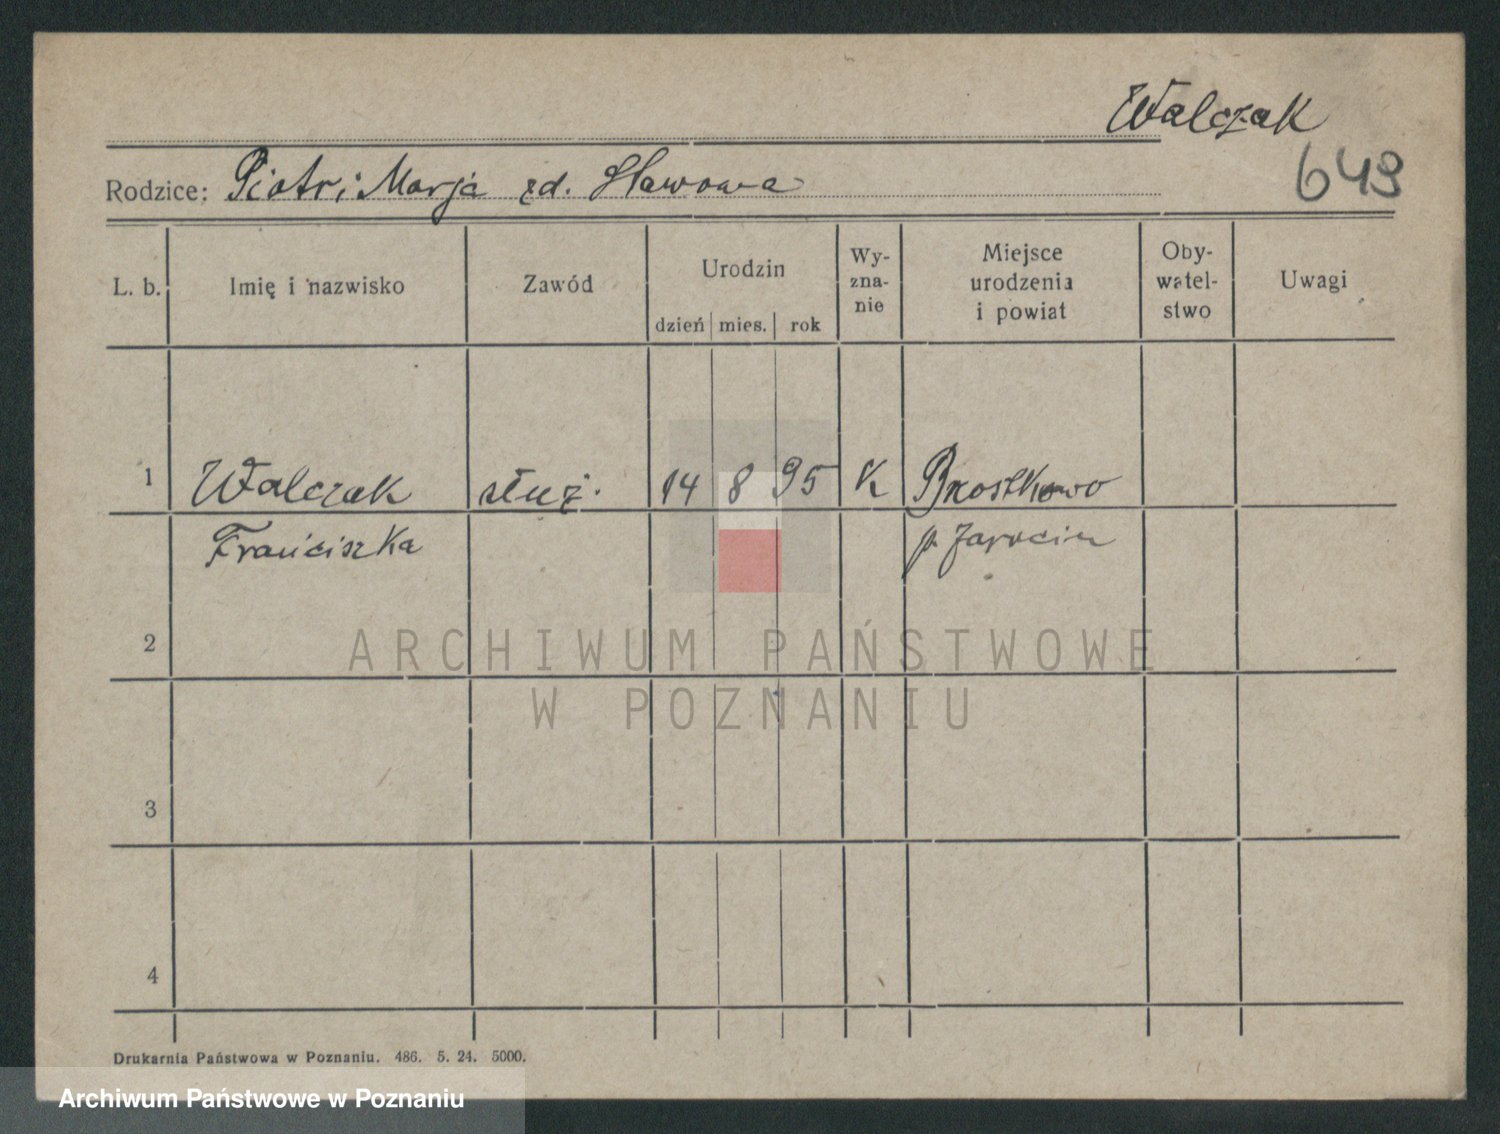 Walczak
649
Rodzice: Piotr i Marja zd.
L. b.
Imię i nazwisko
Zawód
Urodzin
dzień mies. rok
Wy-
zna-
nie
Miejsce
urodzenia
i powiat
Oby-
watel-
stwo
Uwagi
1 Walczak służ. 14 8 95 K
Franciszka p. Jarocin
2
3
4
ARCHIWUM PAŃSTWOWE
W POZNANIU
Drukarnia Państwowa w Poznaniu. 486. 5. 24. 5000.
Archiwum Państwowe w Poznaniu